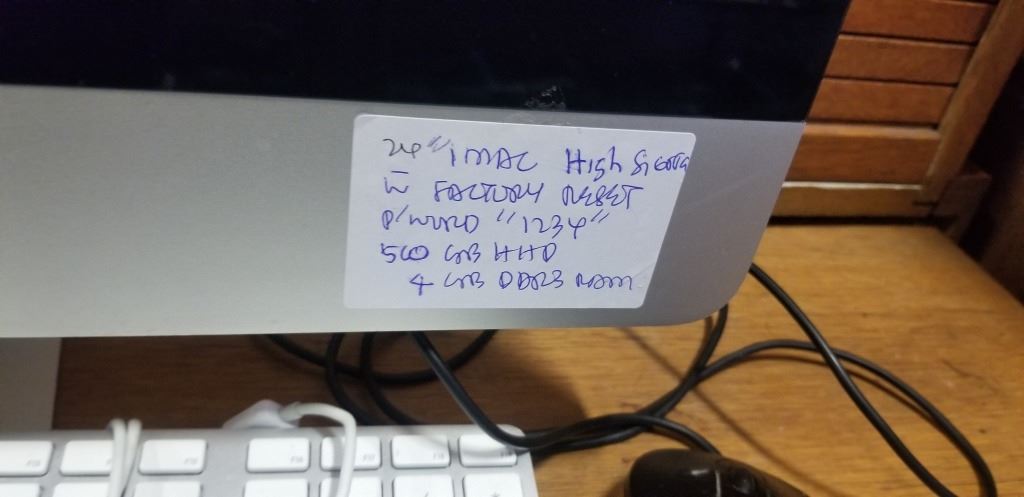 24" iMAC High Sierra
W FACTORY RESET
P/WORD "1234"
500 GB HHD
4 GB DDR3 RAM